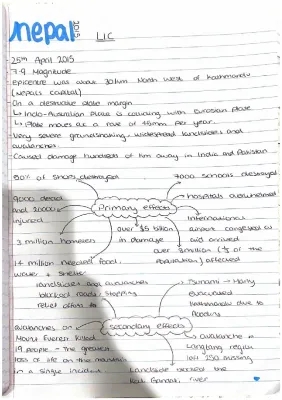 nepal 2015 LIC
25th April 2015
7.9 Magnitude
Epicentre was about 80km North West of Kathmandu
(Nepal's capital)
On a destructive plate margin
↳ Indo-Australian Plate is colliding with Eurasian Plate
↳ Plate moves at a rate of 45mm per year.
Very severe groundshaking, widespread landslides and
avalanches.
Caused damage hundreds of km away in India and Pakistan
50% of shops destroyed
7000 schools destroyed
9000 dead
and 20000
injured
Primary effects
hospitals overwhelmed
International
airport congested as
aid arrived
3 million homeless
over $5 billion
in damage
over 8 million (1/3 of the
population) affected
1.4 million needed food,
water + shelter
landslides and avalanches
blocked roads, stopping
relief efforts
Many
evacuated
Kathmandu due to
flooding
avalanches on
Mount Everest killed
19 people - The greatest
loss of life on the mountain
in a single incident
secondary effects
avalanche in
Langtang region
left 250 missing
Landslide blocked the
Kali Gandaki river